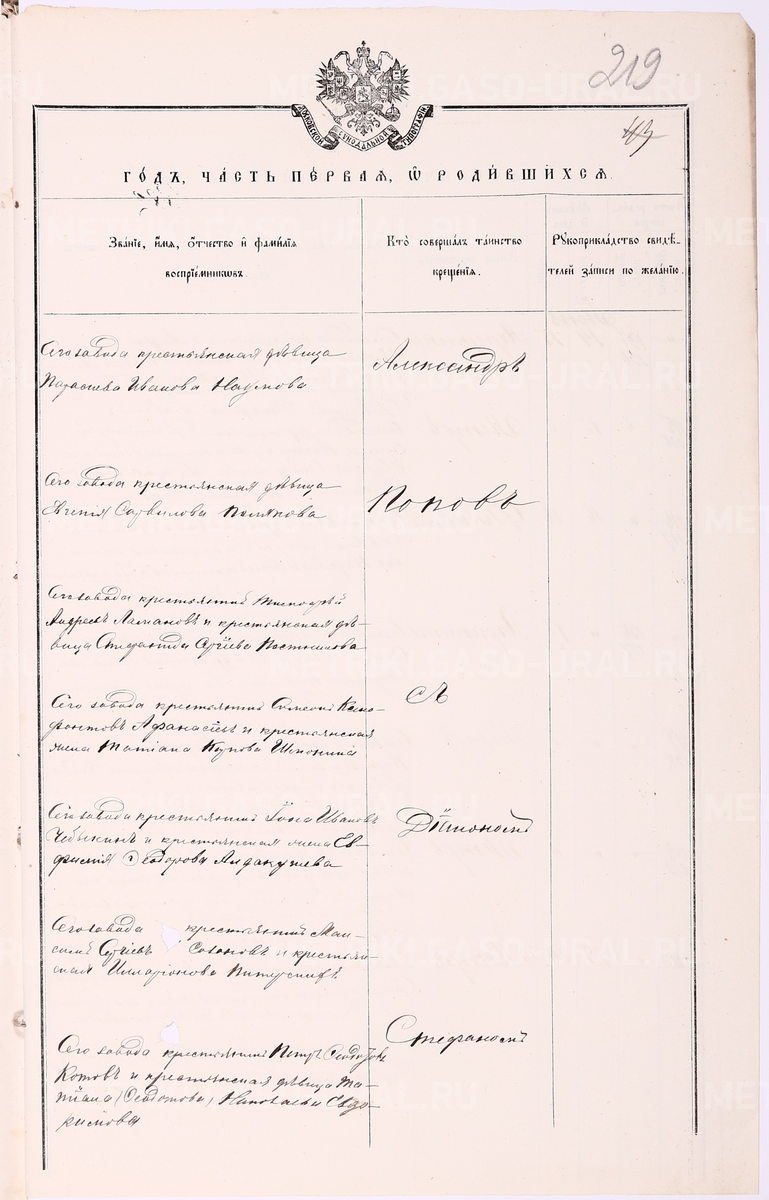 219
43
МОСКОВСКОЙ СѴНОДАЛЬНОЙ ТИПОГРАФІИ
ГО́ДЪ, ЧА́СТЬ ПЕ́РВАЯ, Ѿ РОДИ́ВШИХСЯ.
Зва́нїе, и́мя, ѻ́тчество и҆ фами́лїя
воспрїе́мникѡвъ.
Кто̀ соверша́лъ та́инство
креще́нїя.
Рꙋкоприкла́дство свидѣ́-
телей за́писи по жела́нїю.
Сего завода крестьянская дѣвица
Параскева Иванова Наумова
Александръ
Сего завода крестьянская дѣвица
Савилова Полякова
Поповъ
Сего завода крестьянинъ
Андреевъ и крестьянская дѣ-
вица Сергіева Постникова
Сего завода крестьянинъ Симеонъ Ксено-
фонтовъ Афанасьевъ и крестьянская
жена Татіана Шпонина
Съ
Сего завода крестьянинъ Іона Ивановъ
Чебыкинъ и крестьянская жена Ев-
фимія Ѳеодорова
Діакономъ
Сего завода крестьянинъ Мак-
симъ Сергіевъ Созоновъ и крестьян-
ская Иларіонова
Стефаномъ
Сего завода крестьянинъ Петръ Ѳеодоровъ
Котовъ и крестьянская дѣвица Та-
тіана (Ѳеодотова) Николаева Евдо-
кимова